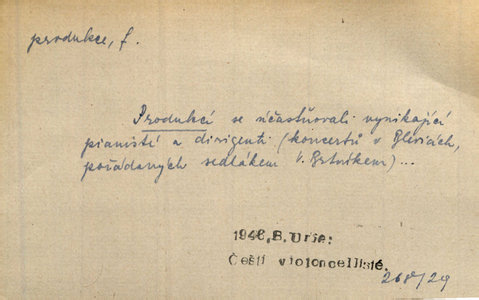 produkce, f.
Produkcí se účastňovali vynikající
pianisté a dirigenti (koncertů v Blevicích,
pořádaných sedlákem V. Brtníkem)...
1948, B. Urie:
Čeští violoncellisté.
268/29